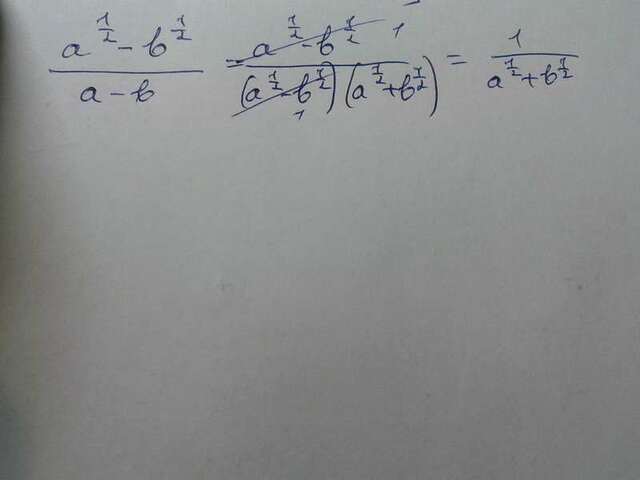 (a^{1/2} - b^{1/2})/(a - b) = (a^{1/2} - b^{1/2})/((a^{1/2} - b^{1/2})(a^{1/2} + b^{1/2})) = 1/(a^{1/2} + b^{1/2})